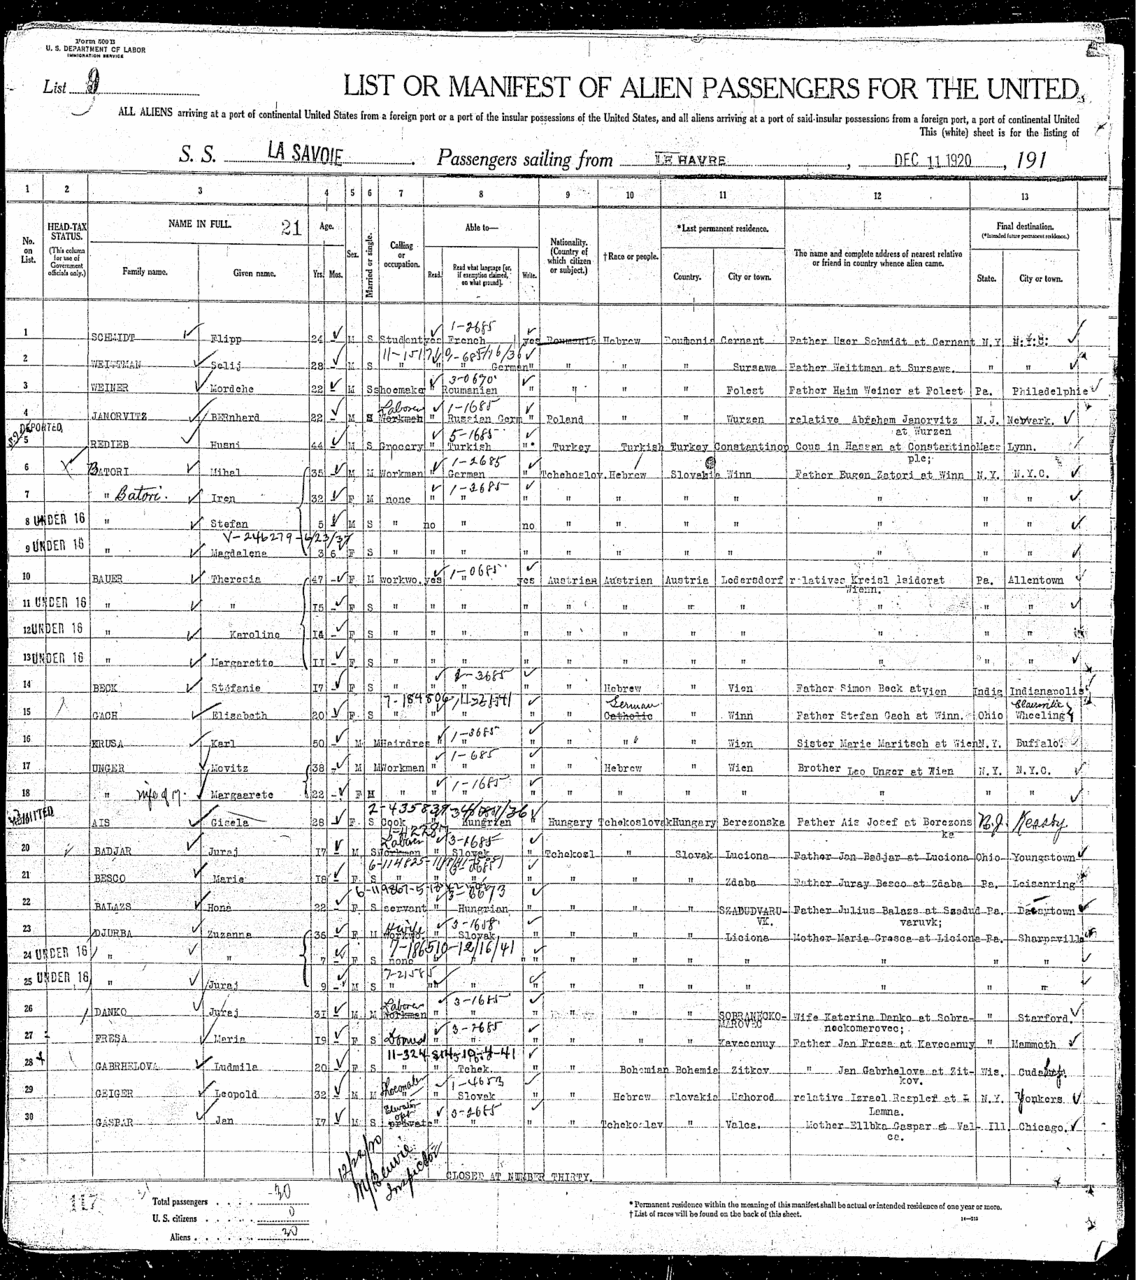 Form 500 B
U. S. DEPARTMENT OF LABOR
IMMIGRATION SERVICE
List 9
LIST OR MANIFEST OF ALIEN PASSENGERS FOR THE UNITED
ALL ALIENS arriving at a port of continental United States from a foreign port or a port of the insular possessions of the United States, and all aliens arriving at a port of said insular possessions from a foreign port, a port of continental United
This (white) sheet is for the listing of
S. S. LA SAVOIE . Passengers sailing from LE HAVRE , DEC 11 1920 , 191
1 2 3 4 5 6 7 8 9 10 11 12 13
No. on List.
HEAD-TAX STATUS.
(This column for use of Government officials only.)
NAME IN FULL. 21
Family name. Given name.
Age.
Yrs. Mos.
Sex.
Married or single.
Calling or occupation.
Able to—
Read. Read what language [or, if exemption claimed, on what ground]. Write.
Nationality. (Country of which citizen or subject.)
†Race or people.
*Last permanent residence.
Country. City or town.
The name and complete address of nearest relative or friend in country whence alien came.
Final destination.
(*Intended future permanent residence.)
State. City or town.
1-2685
1 SCHMIDT Filipp 24 M S Student yes French yes Roumania Hebrew Roumania Cernant Father User Schmidt at Cernant N.Y. N.Y.C.
2 WEITTMAN Solij 28 M S " German " " " " Sursawa Father Weittman at Sursawa. " "
3-0670
3 WEINER Mordche 22 M S shoemake " Roumanian " " " " Folest Father Haim Weiner at Folest Pa. Philadelphie
Laborer 1-1685
4 JANORVITZ BERnherd 22 M S Workmen " Russian Germ " Poland " " Wurzen relative Abrahem Janorvitz N.J. Newark.
at Wurzen
DEPORTED,
5-1685
5 REDIEB Husni 44 M S Grocery " Turkish " Turkey Turkish Turkey Constantinop Cous in Hassen at Constantino Mass Lynn.
ple;
1-2685
6 BATORI Mihal 35 M M Workman " German " Tchehoslov. Hebrew Slovakia Winn Father Eugen Zatori at Winn N.Y. N.Y.C.
1-2685
7 " Batori. Iren 32 F M none " " " " " " " " " "
8 UNDER 16 " Stefan 5 M S " no " no " " " " " " "
V-246279-6/23/37
9 UNDER 16 " Magdalene 3 6 F S " " " " " " " " " " "
1-0685
10 BAUER Theresia 47 F M workwo. yes " yes Austrian Austrian Austria Ledersdorf relatives Kreisl Isidorat Pa. Allentown
Wienn.
11 UNDER 16 " " 15 F S " " " " " " " " " " "
12 UNDER 16 " Karoline 14 F S " " " " " " " " " "
13 UNDER 16 " Margarette 11 F S " " " " " " " " " " "
2-3685
14 BECK Stéfanie 17 F S " " " " " Hebrew " Vien Father Simon Beck at vien India Indianapolis
German
15 GACH Elizabeth 20 F S " " " " " Catholic " Winn Father Stefan Gach at Winn. Ohio Wheeling
1-3685
16 KRUSA Karl 50 M M Hairdres " " " " " " Wien Sister Marie Maritsch at Wien N.Y. Buffalo.
1-685
17 UNGER Movitz 38 M M Workman " " " " Hebrew " Wien Brother Leo Unger at Wien N.Y. N.Y.C.
1-1685
18 " wife of 17. Margaarete 22 F M " " " " " " " " " " "
ADMITTED
19 AIS Gisela 28 F S Cook " Hungrian " Hungary Tchekoslovak Hungary Berezonska Father Ais Josef at Berezons N.J.
ka
Laborer 3-1685
20 BADJAR Juraj 17 M S Workman " Slovak " Tchekosl " Slovak Luciona Father Jan Badjar at Luciona Ohio Youngstown
21 BESCO Marie 18 F S " " " " " " " Zdaba Father Juray Besco at Zdaba Pa. Leisenring
22 BALAZS Hone 22 F S servant " Hungrian " " " " SZABUDVARU- Father Julius Balazs at Szadud Pa. Daisytown
VK. varuvk;
3-1658
23 DJURBA Zuzanna 36 F M " Slovak " " " " Liciona Mother Maria Gresca at Liciona Pa. Sharpsville
7-186510-12/16/41
24 UNDER 16 " " 7 F S none " " " " " " " " " "
25 UNDER 16 " Juraj 9 M S " " " " " " " " " "
Laborer 3-1685
26 DANKO Juraj 31 M M Workman " " " " " " SOBRANECKO- Wife Katerina Danko at Sobra- " Starford.
MAROVEC neckomarovec;
3-2685
27 FRESA Maria 19 F S Domes " " " " " " Kavecanuy Father Jan Fresa at Kavecanuy " Mammoth
28 GABRHELOVA Ludmila 20 F S " " Tchek. " " Bohemian Bohemia Zitkov " Jan Gabrhelova at Zit- Wis. Cudahy.
kov.
1-4653
29 GEIGER Leopold 32 M S " Slovak " " Hebrew slovakia Ushorod relative Israel Respler at N.Y. Yonkers
Lemna.
3-2685
30 GASPAR Jan 17 M S private " " " " Tchekoslav " Valca. Mother Ellbka Gaspar at Val- Ill. Chicago.
ca.
CLOSED AT NUMBER THIRTY.
12/22/20
Inspector
117
Total passengers 30
U. S. citizens 0
Aliens 30
* Permanent residence within the meaning of this manifest shall be actual or intended residence of one year or more.
† List of races will be found on the back of this sheet.